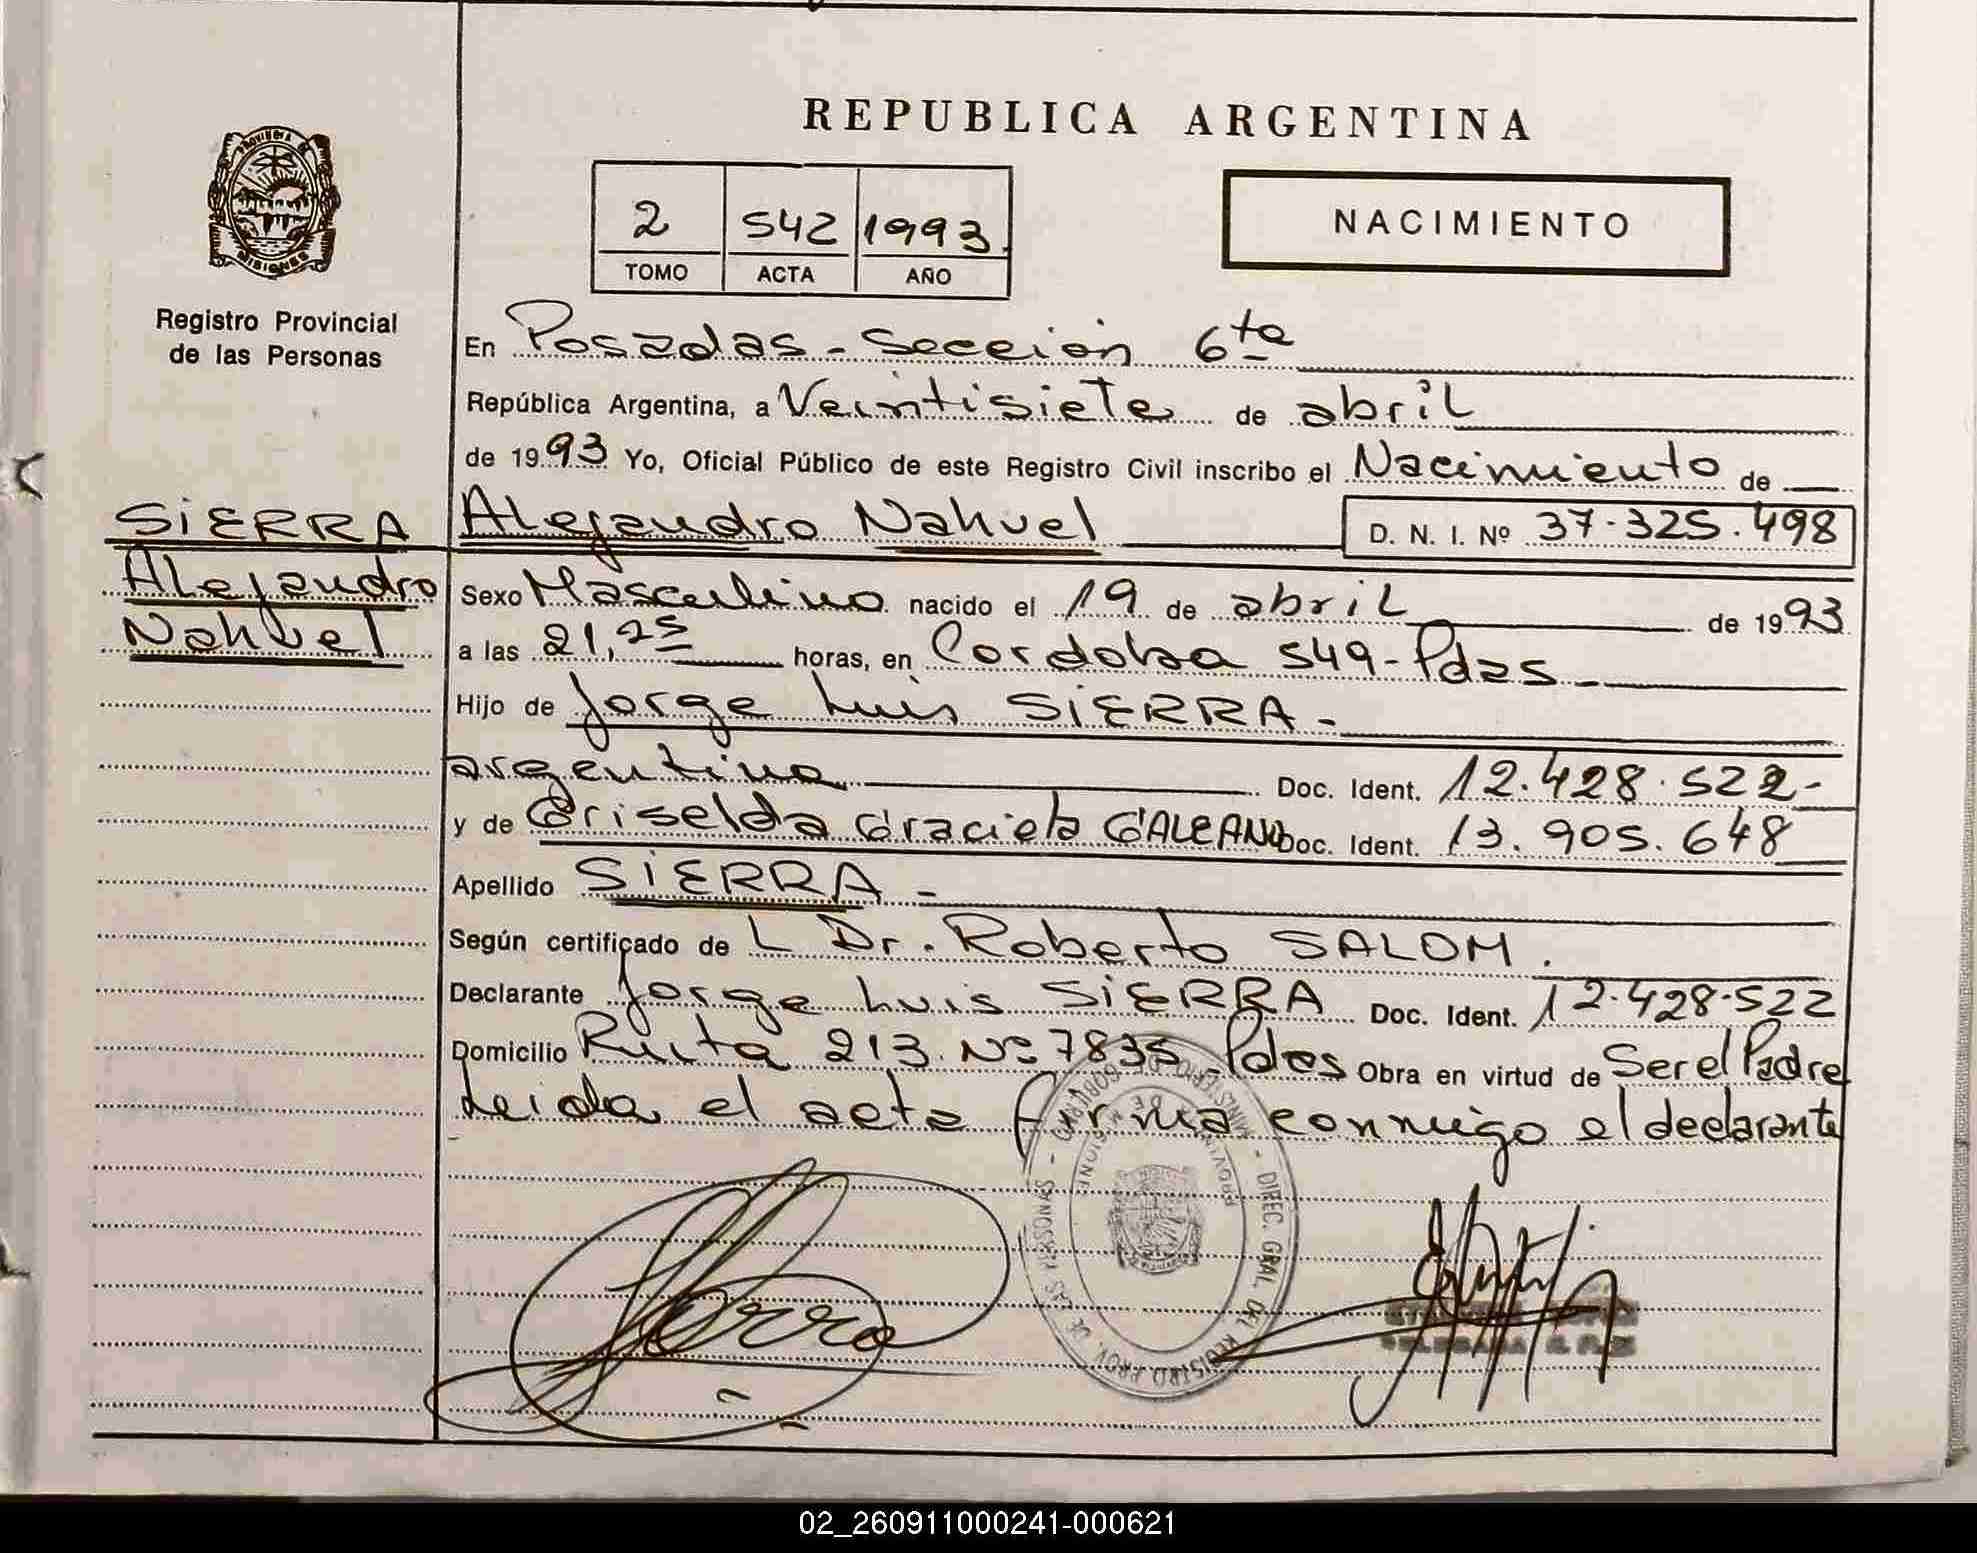 REPUBLICA ARGENTINA
PROVINCIA DE MISIONES
Registro Provincial
de las Personas
2 542 1993
TOMO ACTA AÑO
NACIMIENTO
En Posadas - Sección 6ta
República Argentina, a Veintisiete de abril
de 1993 Yo, Oficial Público de este Registro Civil inscribo el Nacimiento de
SIERRA
Alejandro
Nahuel
Alejandro Nahuel D. N. I. Nº 37.325.498
Sexo Masculino nacido el 19 de abril de 1993
a las 21,25 horas, en Cordoba 549-Pdas
Hijo de Jorge Luis SIERRA -
argentino Doc. Ident. 12.428.522-
y de Griselda Graciela GALEANO Doc. Ident. 13.905.648
Apellido SIERRA -
Según certificado de L Dr. Roberto SALOM.
Declarante Jorge Luis SIERRA Doc. Ident. 12.428.522
Domicilio Ruta 213 Nº 7835 Pdas Obra en virtud de Ser el Padre
Leida el acta firma conmigo el declarante
MINISTERIO DE GOBIERNO - DIREC. GRAL. DEL REGISTRO PROV. DE LAS PERSONAS -
PROVINCIA DE MISIONES
02_260911000241-000621